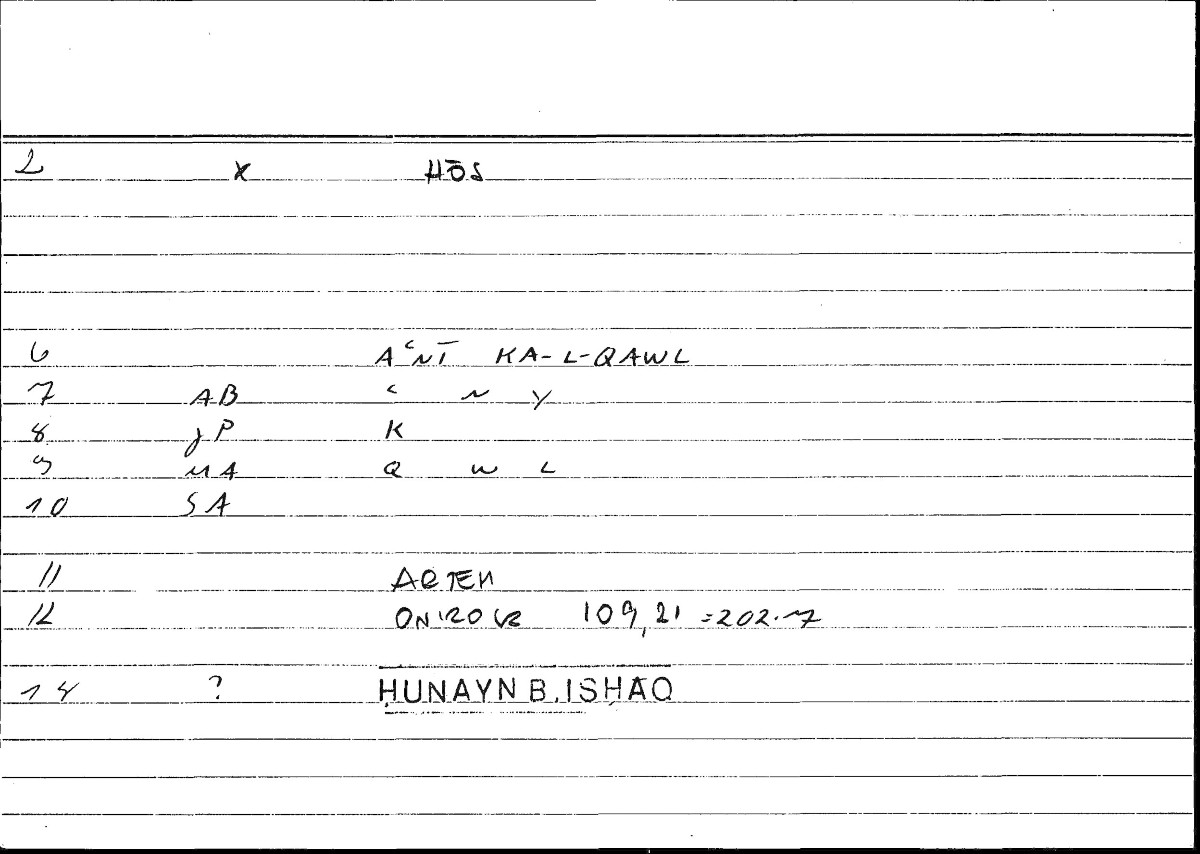 2 x HŌS
6 AʿNĪ KA-L-QAWL
7 AB ʿ N Y
8 JP K
9 MA Q W L
10 SA
11 ARTEM
12 ONIROCR 109,21 =202.7
14 ? ḤUNAYN B. ISḤĀQ